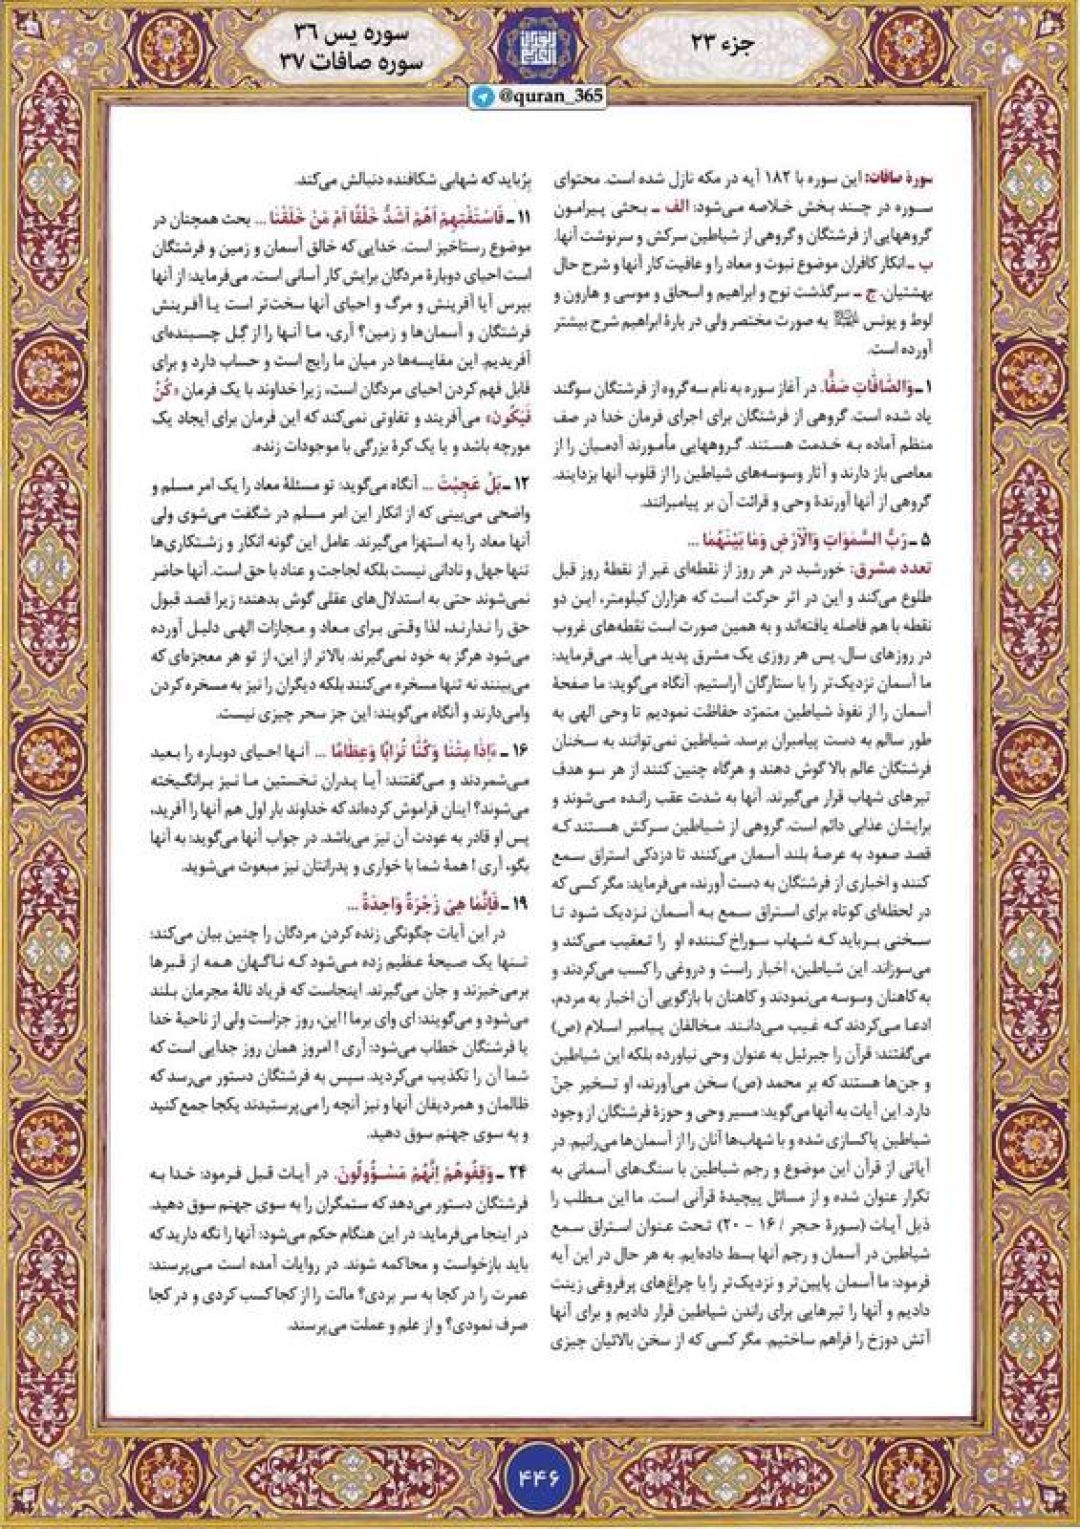 جزء ۲۳
سوره یس ۳۶
سوره صافات ۳۷
@quran_365
سورهٔ صافات: این سوره با ۱۸۲ آیه در مکه نازل شده است. محتوای
سوره در چند بخش خلاصه می‌شود: الف ـ بحثی پیرامون
گروههایی از فرشتگان و گروهی از شیاطین سرکش و سرنوشت آنها.
ب ـ انکار کافران موضوع نبوت و معاد را و عاقبت کار آنها و شرح حال
بهشتیان. ج ـ سرگذشت نوح و ابراهیم و اسحاق و موسی و هارون و
لوط و یونس به صورت مختصر ولی در بارهٔ ابراهیم شرح بیشتر
آورده است.
۱ـ وَالصَّافَّاتِ صَفًّا. در آغاز سوره به نام سه گروه از فرشتگان سوگند
یاد شده است. گروهی از فرشتگان برای اجرای فرمان خدا در صف
منظم آماده به خدمت هستند. گروههایی مأمورند آدمیان را از
معاصی باز دارند و آثار وسوسه‌های شیاطین را از قلوب آنها بزدایند.
گروهی از آنها آورندهٔ وحی و قرائت آن بر پیامبرانند.
۵ ـ رَبُّ السَّمٰوَاتِ وَالْاَرْضِ وَمَا بَیْنَهُمَا ...
تعدد مشرق: خورشید در هر روز از نقطه‌ای غیر از نقطهٔ روز قبل
طلوع می‌کند و این در اثر حرکت است که هزاران کیلومتر، این دو
نقطه با هم فاصله یافته‌اند و به همین صورت است نقطه‌های غروب
در روزهای سال. پس هر روزی یک مشرق پدید می‌آید. می‌فرماید:
ما آسمان نزدیک‌تر را با ستارگان آراستیم. آنگاه می‌گوید: ما صفحهٔ
آسمان را از نفوذ شیاطین متمرّد حفاظت نمودیم تا وحی الهی به
طور سالم به دست پیامبران برسد. شیاطین نمی‌توانند به سخنان
فرشتگان عالم بالا گوش دهند و هرگاه چنین کنند از هر سو هدف
تیرهای شهاب قرار می‌گیرند. آنها به شدت عقب رانده می‌شوند و
برایشان عذابی دائم است. گروهی از شیاطین سرکش هستند که
قصد صعود به عرصهٔ بلند آسمان می‌کنند تا دزدکی استراق سمع
کنند و اخباری از فرشتگان به دست آورند، می‌فرماید: مگر کسی که
در لحظه‌ای کوتاه برای استراق سمع به آسمان نزدیک شود تا
سخنی برباید که شهاب سوراخ کننده او را تعقیب می‌کند و
می‌سوزاند. این شیاطین، اخبار راست و دروغی را کسب می‌کردند و
به کاهنان وسوسه می‌نمودند و کاهنان با بازگویی آن اخبار به مردم،
ادعا می‌کردند که غیب می‌دانند. مخالفان پیامبر اسلام (ص)
می‌گفتند: قرآن را جبرئیل به عنوان وحی نیاورده بلکه این شیاطین
و جن‌ها هستند که بر محمد (ص) سخن می‌آورند، او تسخیر جنّ
دارد. این آیات به آنها می‌گوید: مسیر وحی و حوزهٔ فرشتگان از وجود
شیاطین پاکسازی شده و با شهاب‌ها آنان را از آسمان‌ها می‌رانیم. در
آیاتی از قرآن این موضوع و رجم شیاطین با سنگ‌های آسمانی به
تکرار عنوان شده و از مسائل پیچیدهٔ قرآنی است. ما این مطلب را
ذیل آیات (سورهٔ حجر / ۱۶ - ۲۰) تحت عنوان استراق سمع
شیاطین در آسمان و رجم آنها بسط داده‌ایم. به هر حال در این آیه
فرمود: ما آسمان پایین‌تر و نزدیک‌تر را با چراغ‌های پرفروغی زینت
دادیم و آنها را تیرهایی برای راندن شیاطین قرار دادیم و برای آنها
آتش دوزخ را فراهم ساختیم. مگر کسی که از سخن بالائیان چیزی
بِرُباید که شهابی شکافنده دنبالش می‌کند.
۱۱ ـ فَاسْتَفْتِهِمْ اَهُمْ اَشَدُّ خَلْقًا اَمْ مَنْ خَلَقْنَا ... بحث همچنان در
موضوع رستاخیز است. خدایی که خالق آسمان و زمین و فرشتگان
است احیای دوبارهٔ مردگان برایش کار آسانی است. می‌فرماید: از آنها
بپرس آیا آفرینش و مرگ و احیای آنها سخت‌تر است یا آفرینش
فرشتگان و آسمان‌ها و زمین؟ آری، ما آنها را از گِل چسبنده‌ای
آفریدیم. این مقایسه‌ها در میان ما رایج است و حساب دارد و برای
قابل فهم کردن احیای مردگان است، زیرا خداوند با یک فرمان «کُنْ
فَیَکُون» می‌آفریند و تفاوتی نمی‌کند که این فرمان برای ایجاد یک
مورچه باشد و یا یک کرهٔ بزرگی با موجودات زنده.
۱۲ ـ بَلْ عَجِبْتَ ... آنگاه می‌گوید: تو مسئلهٔ معاد را یک امر مسلم و
واضحی می‌بینی که از انکار این امر مسلم در شگفت می‌شوی ولی
آنها معاد را به استهزا می‌گیرند. عامل این گونه انکار و زشتکاری‌ها
تنها جهل و نادانی نیست بلکه لجاجت و عناد با حق است. آنها حاضر
نمی‌شوند حتی به استدلال‌های عقلی گوش بدهند؛ زیرا قصد قبول
حق را ندارند، لذا وقتی برای معاد و مجازات الهی دلیل آورده
می‌شود هرگز به خود نمی‌گیرند. بالاتر از این، از تو هر معجزه‌ای که
می‌بینند نه تنها مسخره می‌کنند بلکه دیگران را نیز به مسخره کردن
وامی‌دارند و آنگاه می‌گویند: این جز سحر چیزی نیست.
۱۶ ـ ءَاِذَا مِتْنَا وَکُنَّا تُرَابًا وَعِظَامًا ... آنها احیای دوباره را بعید
می‌شمردند و می‌گفتند: آیا پدران نخستین ما نیز برانگیخته
می‌شوند؟ اینان فراموش کرده‌اند که خداوند بار اول هم آنها را آفرید،
پس او قادر به عودت آن نیز می‌باشد. در جواب آنها می‌گوید: به آنها
بگو، آری! همهٔ شما با خواری و پدرانتان نیز مبعوث می‌شوید.
۱۹ ـ فَاِنَّمَا هِیَ زَجْرَةٌ وَاحِدَةٌ ...
در این آیات چگونگی زنده کردن مردگان را چنین بیان می‌کند:
تنها یک صیحهٔ عظیم زده می‌شود که ناگهان همه از قبرها
برمی‌خیزند و جان می‌گیرند. اینجاست که فریاد نالهٔ مجرمان بلند
می‌شود و می‌گویند: ای وای برما! این، روز جزاست ولی از ناحیهٔ خدا
یا فرشتگان خطاب می‌شود: آری! امروز همان روز جدایی است که
شما آن را تکذیب می‌کردید. سپس به فرشتگان دستور می‌رسد که
ظالمان و همردیفان آنها و نیز آنچه را می‌پرستیدند یکجا جمع کنید
و به سوی جهنم سوق دهید.
۲۴ ـ وَقِفُوهُمْ اِنَّهُمْ مَسْؤُولُونَ. در آیات قبل فرمود: خدا به
فرشتگان دستور می‌دهد که ستمگران را به سوی جهنم سوق دهید.
در اینجا می‌فرماید: در این هنگام حکم می‌شود: آنها را نگه دارید که
باید بازخواست و محاکمه شوند. در روایات آمده است می‌پرسند:
عمرت را در کجا به سر بردی؟ مالت را از کجا کسب کردی و در کجا
صرف نمودی؟ و از علم و عملت می‌پرسند.
۴۴۶